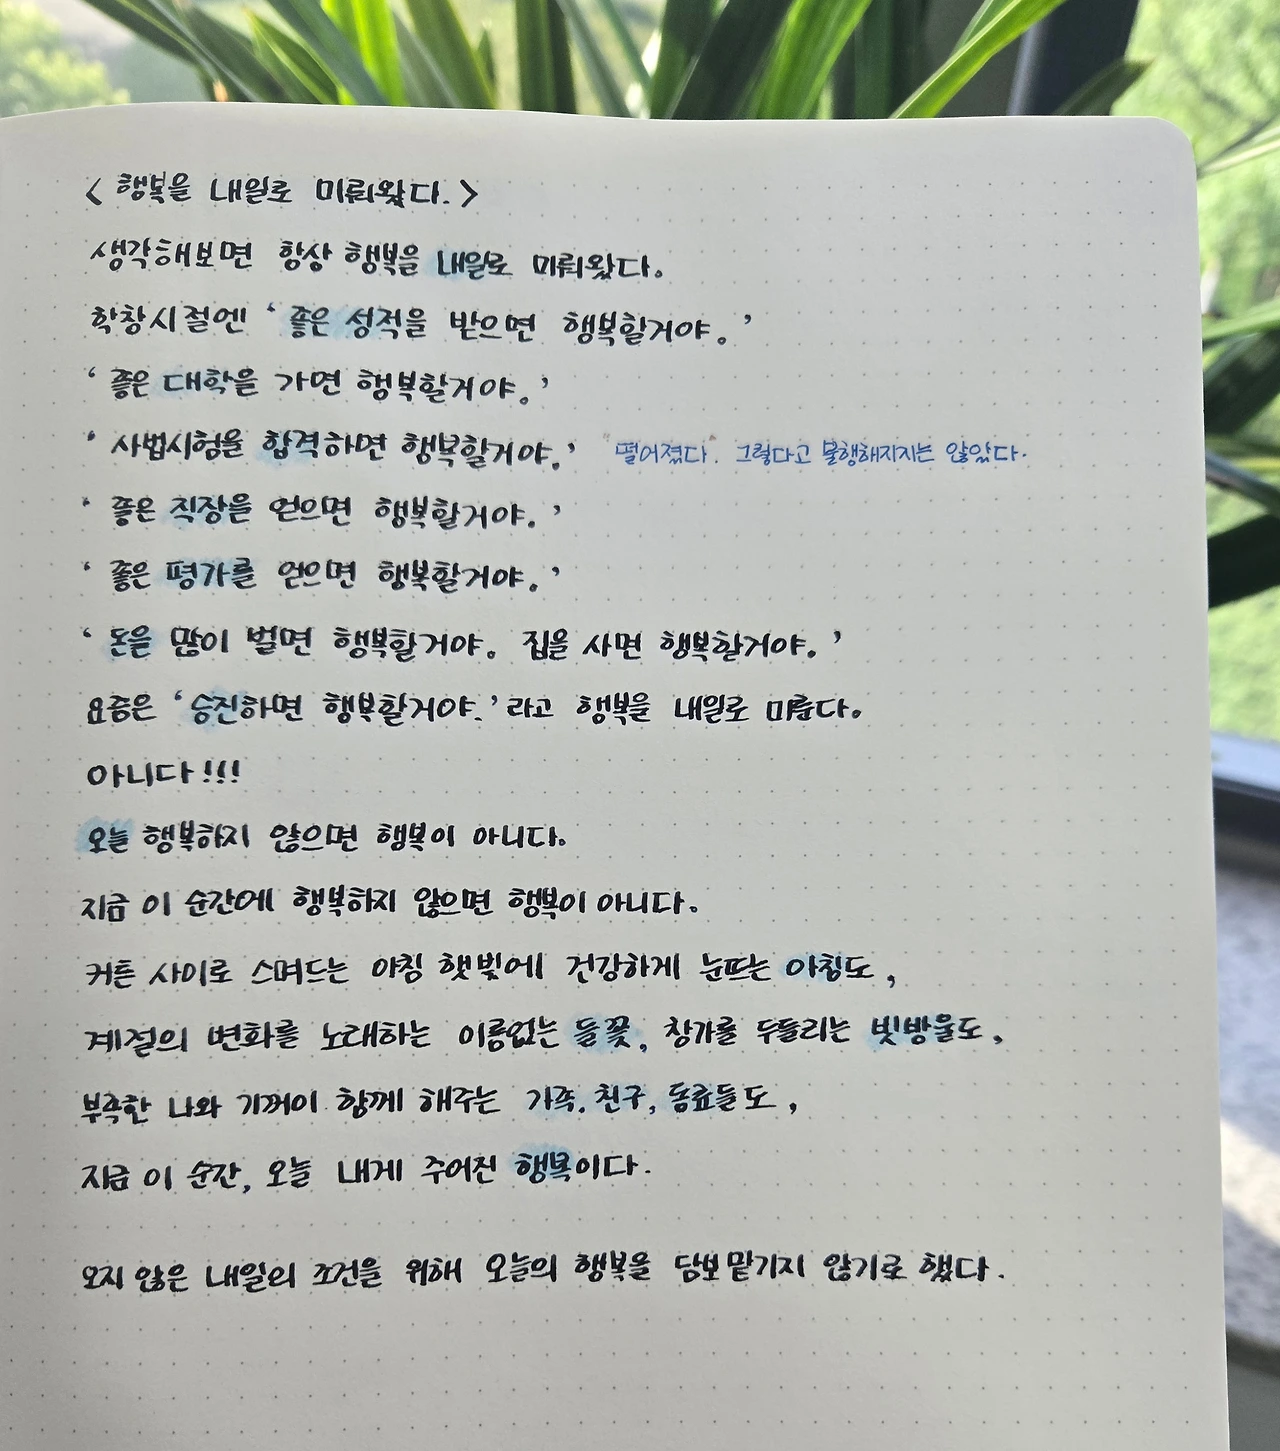 < 행복을 내일로 미뤄왔다. >
생각해보면 항상 행복을 내일로 미뤄왔다.
학창시절엔 ‘좋은 성적을 받으면 행복할거야.’
‘좋은 대학을 가면 행복할거야.’
‘사법시험을 합격하면 행복할거야.’ 떨어졌다. 그렇다고 불행해지지는 않았다.
‘좋은 직장을 얻으면 행복할거야.’
‘좋은 평가를 얻으면 행복할거야.’
‘돈을 많이 벌면 행복할거야. 집을 사면 행복할거야.’
요즘은 ‘승진하면 행복할거야.’라고 행복을 내일로 미룬다.
아니다!!!
오늘 행복하지 않으면 행복이 아니다.
지금 이 순간에 행복하지 않으면 행복이 아니다.
커튼 사이로 스며드는 아침 햇빛에 건강하게 눈뜨는 아침도,
계절의 변화를 노래하는 이름없는 들꽃, 창가를 두들리는 빗방울도,
부족한 나와 기꺼이 함께 해주는 가족, 친구, 동료들도,
지금 이 순간, 오늘 내게 주어진 행복이다.
오지 않은 내일의 조건을 위해 오늘의 행복을 담보 맡기지 않기로 했다.